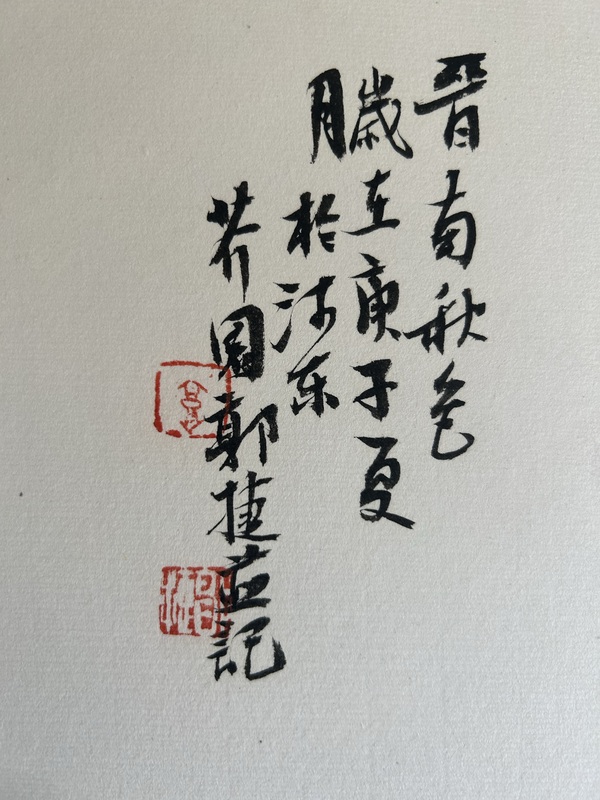 晋南秋色
歲在庚子夏
月於东
芥園郭捷並記